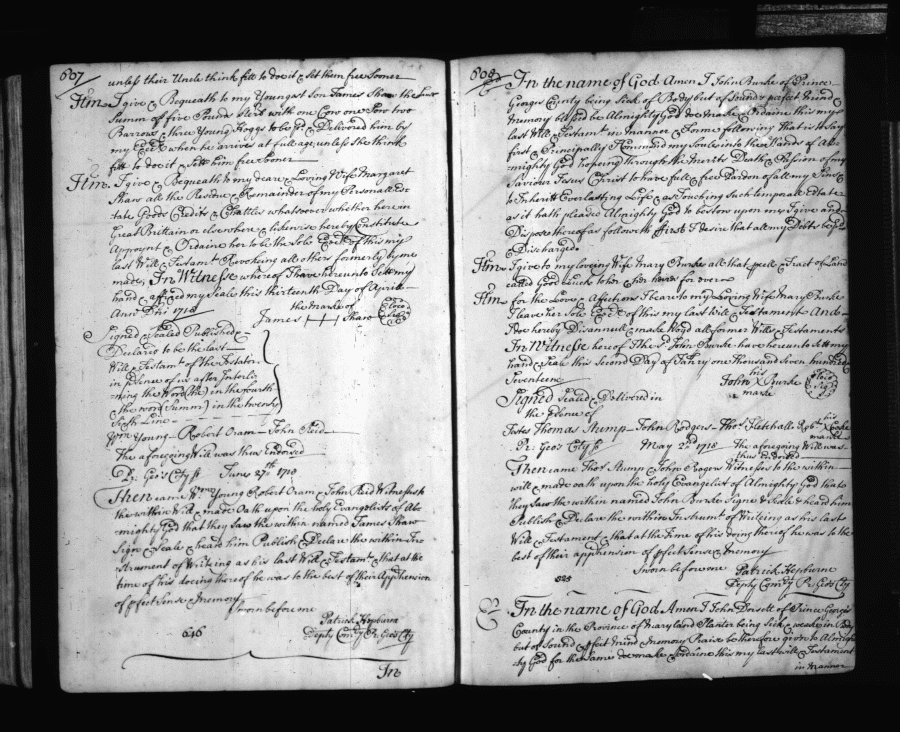 607
unless their Uncle think fitt to doe it & Set them free Sooner
Itm I give & Bequeath to my Youngest Son James Shaw the
Summ of five Pounds Sterl with one Cow one Sow two
Barrow & three Young Hoggs to be pd. & Delivered him by
my Exex when he arrives at full age, unless she think
fitt to doe it & Sett him free Sooner
Itm. I give & Bequeath to my deare & Loving Wife Margaret
Shaw all the Residue & Remainder of my Personall Es-
tate Goods Credits & Chattles whatsoever whether here in
Great Brittain or elsewhere & likewise hereby Constitute
Appoynt & Ordaine her to be the Sole Exex of this my
last Will & Testamt. Revokeing all others formerly by me
made, In Witnesse whereof I have hereunto Sett my
hand & affixed my Seale this thirteenth Day of Aprill
Ano Dni 1718
the marke of
James Shaw
Signed Sealed Published &
Declared to be the last
Will & Testamt. of the Testator
in Psence of us after Interli-
-ning the Word (the) in the fourth
the word (Summ) in the twenty
Sixth Line
Wm Young - Robert Oram - John Reid
The aforegoing Will was thus Endorsed
Pr. Geo's Cty ss June 27th 1718
Then came Wm Young Robert Oram & John Reid Witnesses to
the within Will & made Oath upon the holy Evangelists of Al-
mighty God that they Saw the within named James Shaw
Signe & Seale & heard him Publish & Declare the within In-
strument of Writeing as his last Will & Testamt. & that at the
time of his doeing thereof he was to the best of their Apphension
of pfect Sense & Memory
Sworn before me
Patrick Hepburn
Depty Comry Pr. Geo's Cty
646
In
608
In the name of God Amen I John Burke of Prince
Georges County being Sick of Body but of Sound & perfect Mind &
Memory blessed be Almighty God doe make & Ordaine this my
last Will & Testamt. in manner & Forme following that is to Say
first & Principally I Commend my Soule into the Hands of Al-
mighty God hopeing through the Meritts Death & Passion of my
Saviour Jesus Christ to have full & free Pardon of all my Sins &
to Inheritt Everlasting Life & as Touching Such temporall Estate
as it hath pleased Almighty God to bestow upon me I give and
Dispose thereof as followeth first I desire that all my Debts be
Discharged
Itm I give to my loveing Wife Mary Burke all that psell & Tract of Land
called Good Luck to her & her heirs for ever
Itm for the Love & Affections I beare to my Loving Wife Mary Burke
I leave her Sole Exex of this my last Will & Testament And
doe hereby Disannull & make Voyd all former Wills & Testaments
In Witnesse hereof I the sd John Burke have hereunto sett my
hand & Seale this Second Day of Janry one thousand Seven hundred
Seventeene
his
John X Burke
marke
Signed Sealed & Delivered in
the Psence of
Testes Thomas Stump - John Rodgers - Thos. Fletchall Robt. X
his
marke
Pr. Geo's Cty ss May 2nd 1718 The aforegoing Will was
thus Endorsed
Then came Thos Stump & John Rogers Witnesses to the within
Will & made Oath upon the holy Evangelist of Almighty God that
they Saw the within named John Burke Signe & Seale & heard him
Publish & Declare the within Instrumt. of Writeing as his last
Will & Testament & that at the time of his doing thereof he was to the
best of their apphension of pfect Sense & Memory
Sworn before me Patrick Hepburne
Depty Comry Pr. Geo's Cty
In the name of God Amen I John Dorsett of Prince Georges
County in the Province of Maryland Planter being Sick & weake in Body
but of Sound & pfect Mind & Memory Praise be therefore given to Almigh-
ty God for the Same doe make & ordaine this my last Will & Testament
in manner